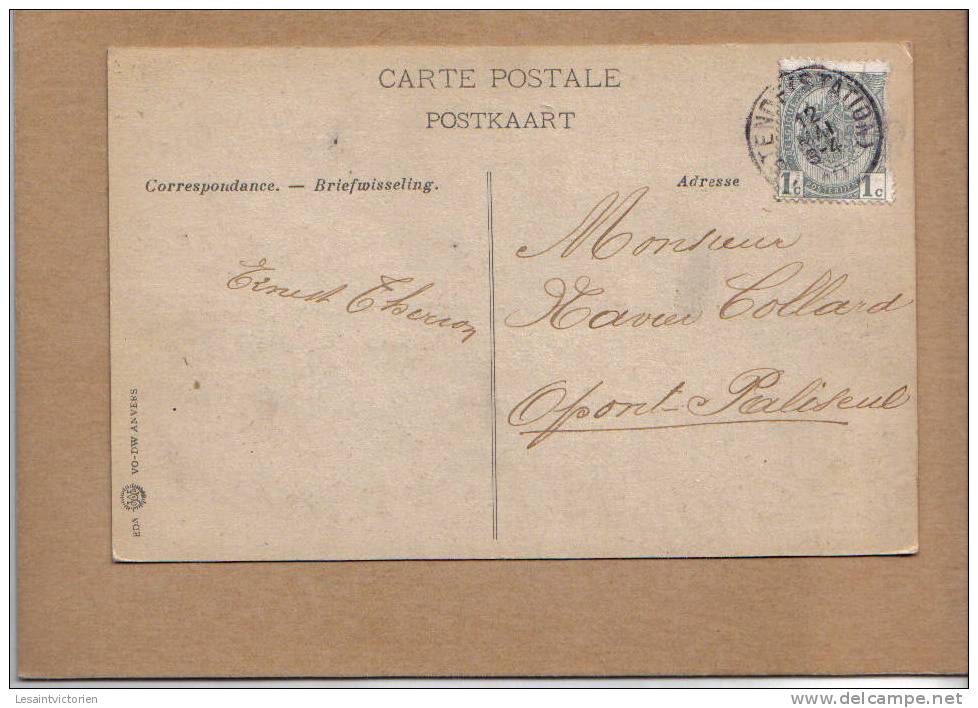 CARTE POSTALE
POSTKAART
Correspondance. — Briefwisseling.
Adresse
(STATION)
12
MAI
1c POSTERIJEN 1c
Ernest Therion
Monsieur
Xavier Collard
Opont-Paliseul
EDN VO-DW ANVERS
Lesaintvictorien
delcampe.net